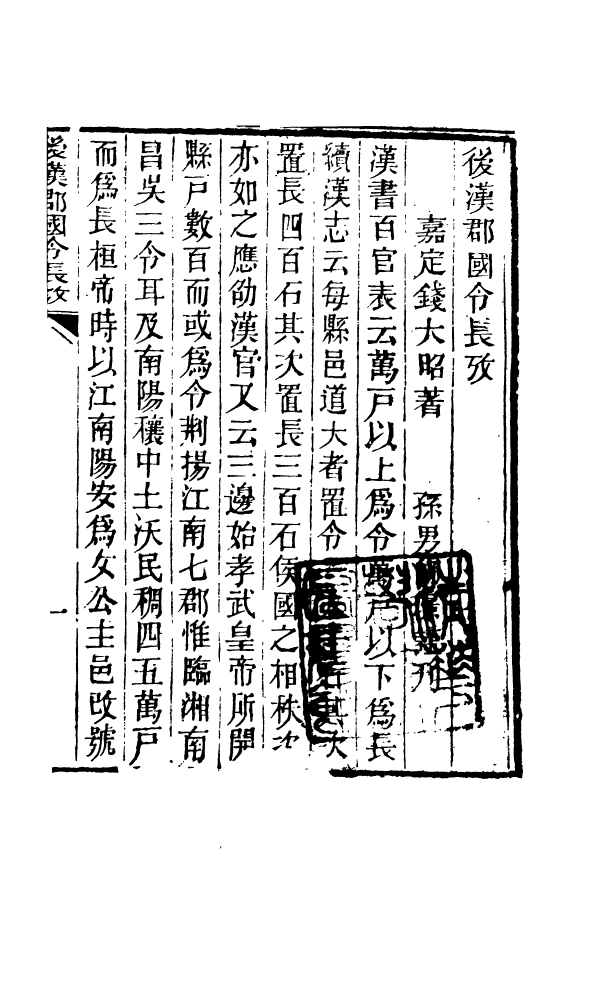 後漢郡國令長攷
嘉定錢大昭著 孫男 刊
漢書百官表云萬戶以上爲令萬戶以下爲長
續漢志云每縣邑道大者置令 其次
置長四百石其次置長三百石侯國之相秩次
亦如之應劭漢官又云三邊始孝武皇帝所開
縣戶數百而或爲令荆揚江南七郡惟臨湘南
昌吳三令耳及南陽穰中土沃民稠四五萬戶
而爲長桓帝時以江南陽安爲女公主邑改號
後漢郡國令長攷
一